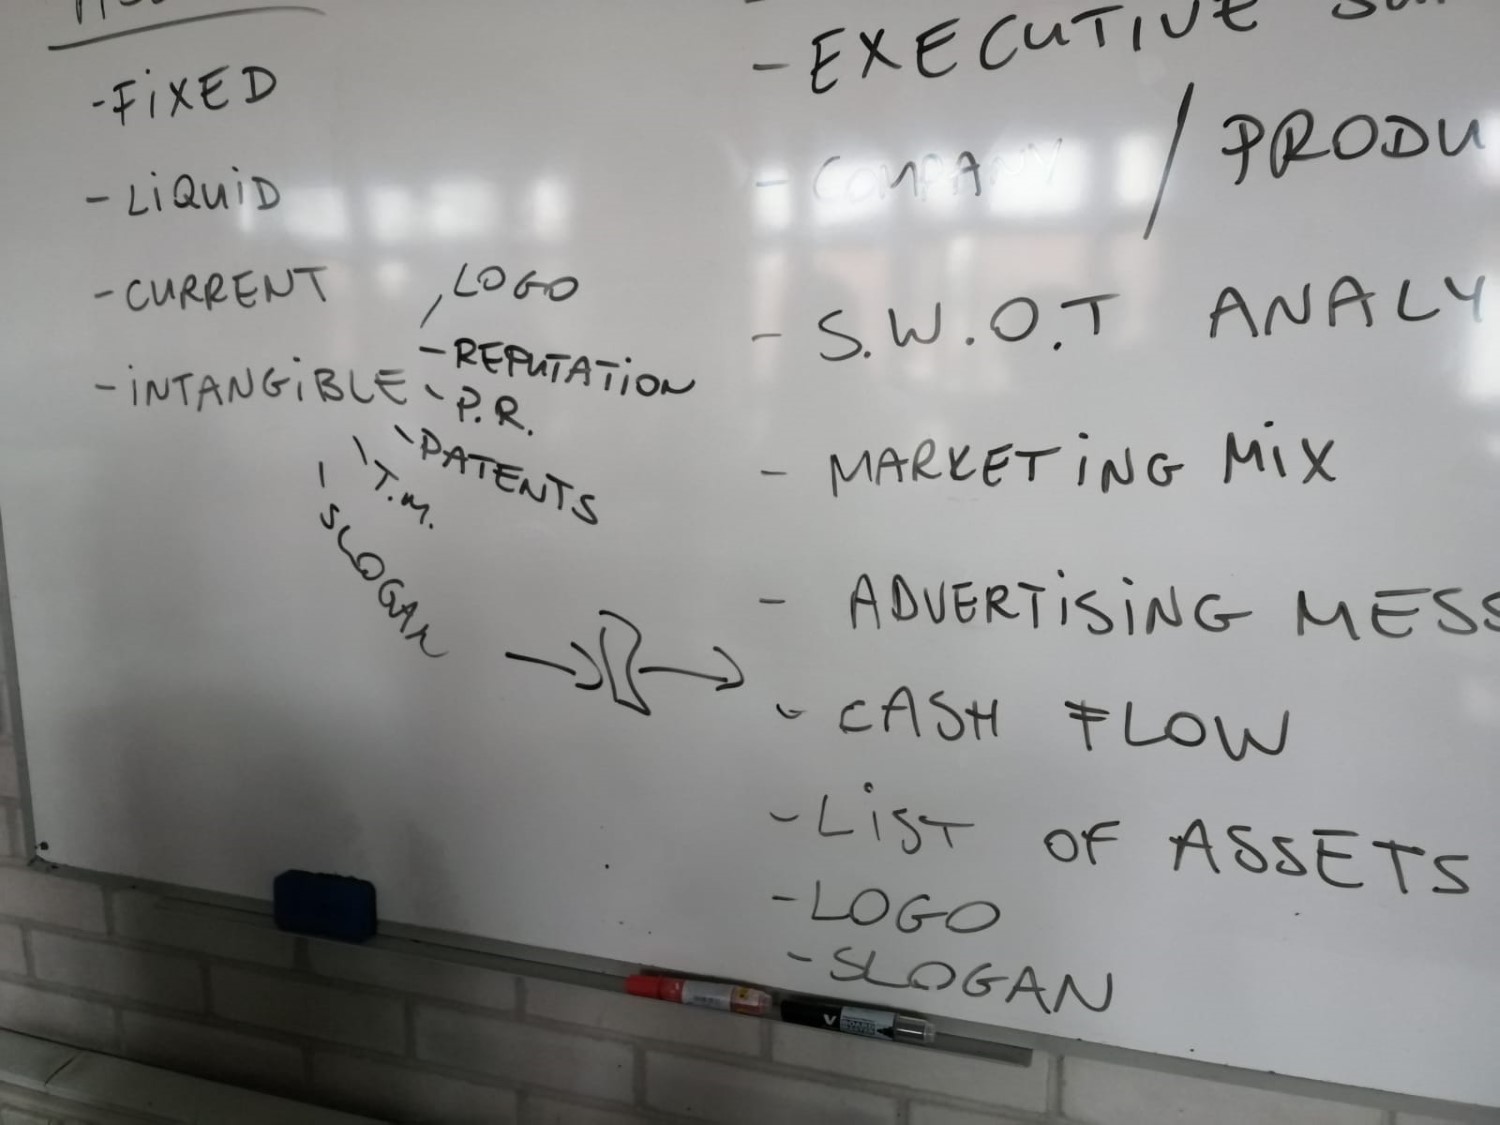 - FiXED
- LiQUiD
- CURRENT
- iNTANGiBLE
LOGO
- REPUTATiON
- P.R.
- PATENTS
- T.M.
- SLOGAN
- EXECUTIVE
- COMPANY / PRODU
- S.W.O.T ANALY
- MARKETiNG MiX
- ADVERTiSiNG MESS
- CASH FLOW
- LiST OF ASSETS
- LOGO
- SLOGAN
V